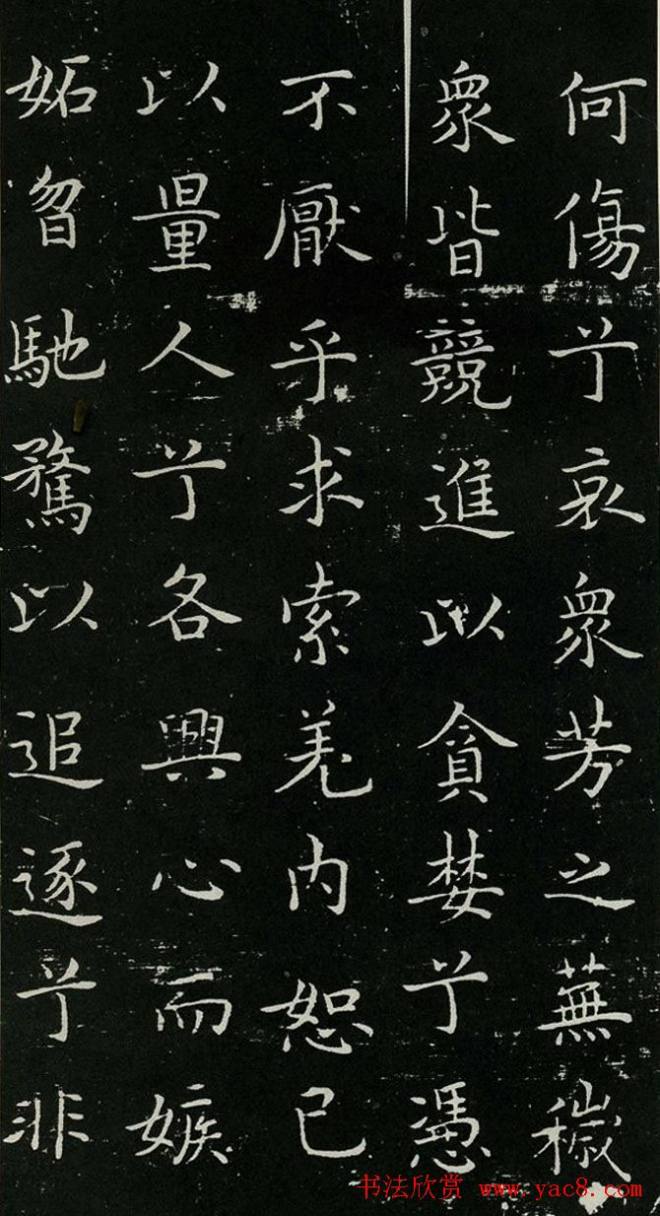 何傷兮哀衆芳之蕪穢
衆皆競進以貪婪兮憑
不厭乎求索羌内恕己
以量人兮各興心而嫉
妬曶馳騖以追逐兮非
书法欣赏 www.yac8.com